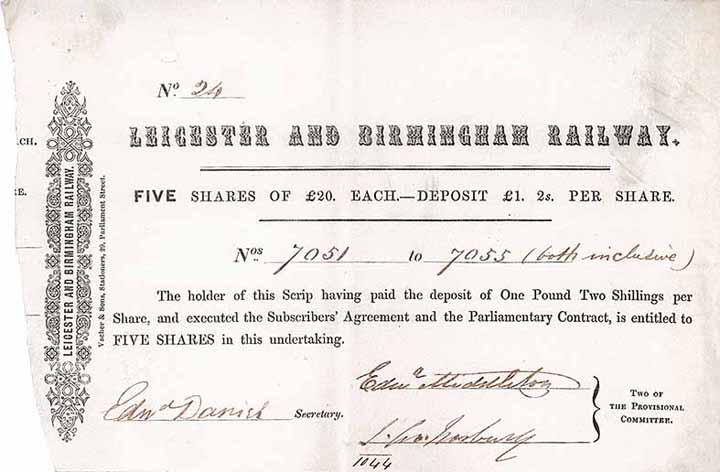 No. 24
LEICESTER AND BIRMINGHAM RAILWAY.
FIVE SHARES OF £20. EACH.—DEPOSIT £1. 2s. PER SHARE.
Nos 7051 to 7055 (both inclusive)
The holder of this Scrip having paid the deposit of One Pound Two Shillings per
Share, and executed the Subscribers' Agreement and the Parliamentary Contract, is entitled to
FIVE SHARES in this undertaking.
Edwd Daniel Secretary.
Edwd Middleton
TWO OF
THE PROVISIONAL
COMMITTEE.
1044
ACH.
RE.
LEICESTER AND BIRMINGHAM RAILWAY.
Vacher & Sons, Stationers, 29, Parliament Street.